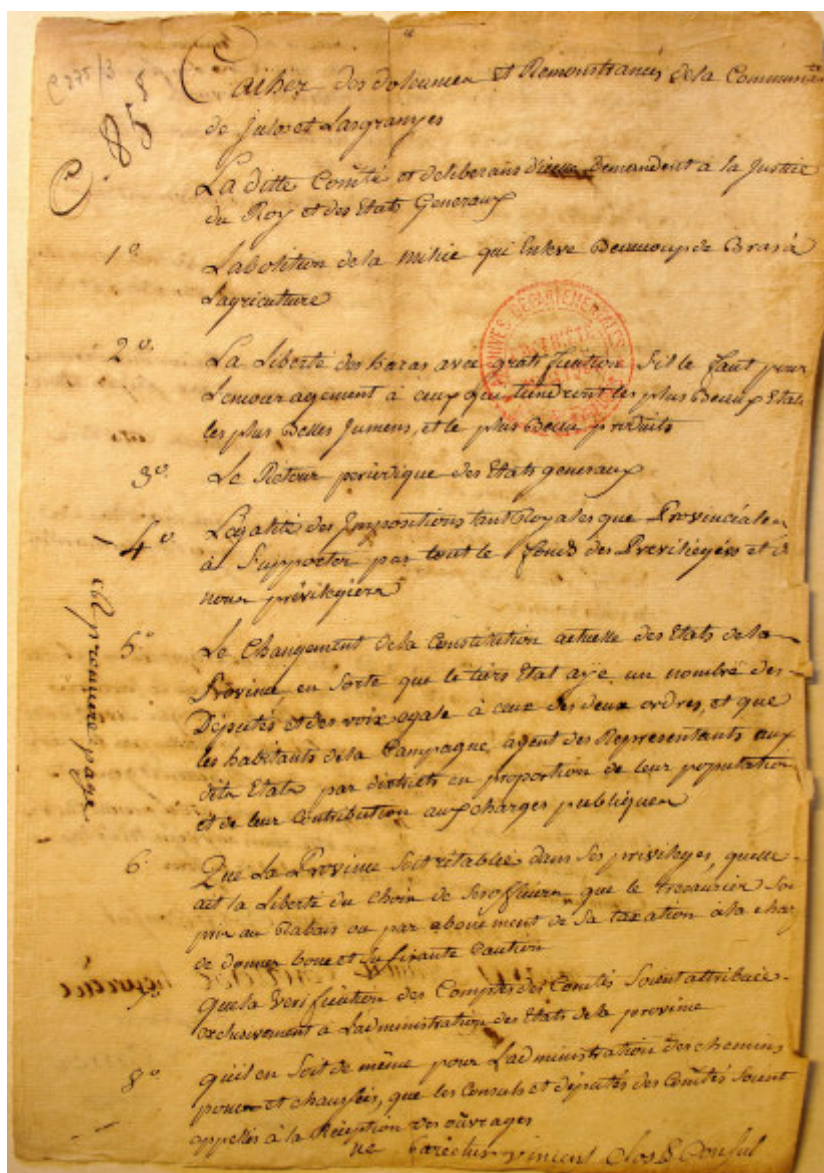 C 275/3
8
C. 85
Caihez des doleances et Remonstrances de la Communauté
de Julos et Lasgranges
La ditte Com̃té et deliberans d'icelle Demandent à la Justice
du Roy et des Etats Generaux
1º Labolition de la milice qui Enleve Beaucoup de Bras à
Lagriculture
2º La Liberté des haras avec gratification Sil le faut pour
Lencouragement à ceux qui tiendront les plus Beaux Etal
les plus Belles Jumens, et le plus Beau produits
3º Le Retour periodique des Etats generaux
4º Legalité des Impositions tant Royales que Provinciales
à Supporter par tout le fonds des Previlegiés et
nous privilegiers
5º Le Changement de la Constitution actuelle des Etats de la
Province, en Sorte que le tiers Etat aÿe un nombre des
Députés et des voix egale à ceux des deux ordres, et que
les habitants de la Campagne, agent des Representants aux
dits Etats par districts en proportion de leur population
et de leur Contribution aux charges publiques
6 Que La Province Soit rétablie dans Ses privileges, quelle
ait la Liberté du choix de Ses officiers que le tresaurier Soi
pris au Rabais ou par abonement de Sa taxation à la char
de donner bone et Sufisante Caution
que la verification des Comptes des Com̃tés Soient attribuée
exclusivement à Ladministration des Etats de la province
8º quil en Soit de même pour Ladministration des chemins
ponts et chaussées, que les Consuls et députés des Com̃tés Soient
appellés à la Réception des ouvrages
ne varietur vincent Clos B. Consul
premiere page
ARCHIVES DÉPARTEMENTALES